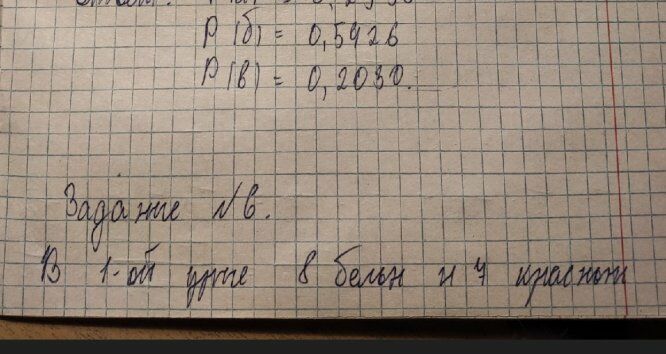 P(б) = 0,5926
P(в) = 0,2030.
Задание №6.
В 1-ой урне 8 белых и 7 красных